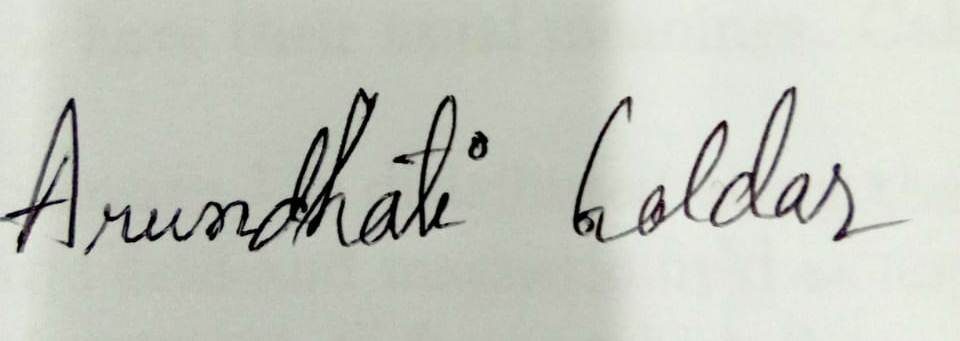 Arundhati Goldar